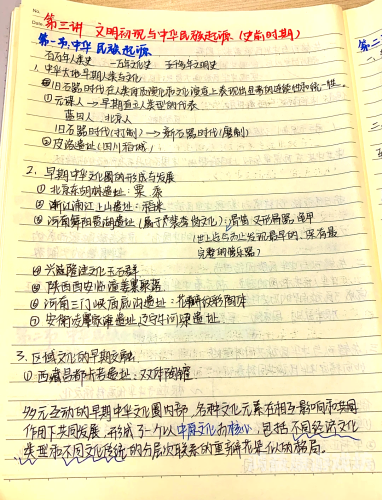 No.
Date
第三讲 文明初现与中华民族起源（史前时期）
第一节.中华民族起源
百万年人类史 一万年文化史 五千多年文明史
1. 中华大地早期人类与文化
旧石器时代在人类体质演化和文化演变上表现出显著的连续性和统一性。
① 元谋人→早期直立人类型的代表
蓝田人、北京人
旧石器时代（打制）→新石器时代（磨制）
② 皮洛遗址（四川稻城）：
2. 早期中华文化圈的形成与发展
① 北京东胡林遗址：粟 黍
② 浙江浦江上山遗址：稻米
③ 河南舞阳贾湖遗址（属于裴李岗文化）：骨笛 叉形骨器 龟甲
（世上迄今为止发现最早的、保存最
完整的管乐器）
④ 兴隆洼文化玉石群
⑤ 陕西西安临潼姜寨聚落
⑥ 河南三门峡庙底沟遗址：花瓣纹彩陶体
⑦ 安徽 遗址，辽宁牛河梁遗址
3. 区域文化的早期交融
① 西藏昌都卡若遗址：双体陶罐
多元互动的早期中华文化圈内部，各种文化元素在相互影响和共同
作用下共同发展，形成了一个以中原文化为核心，包括不同经济文化
类型和不同文化传统的分层次联系的重瓣花朵似的格局。